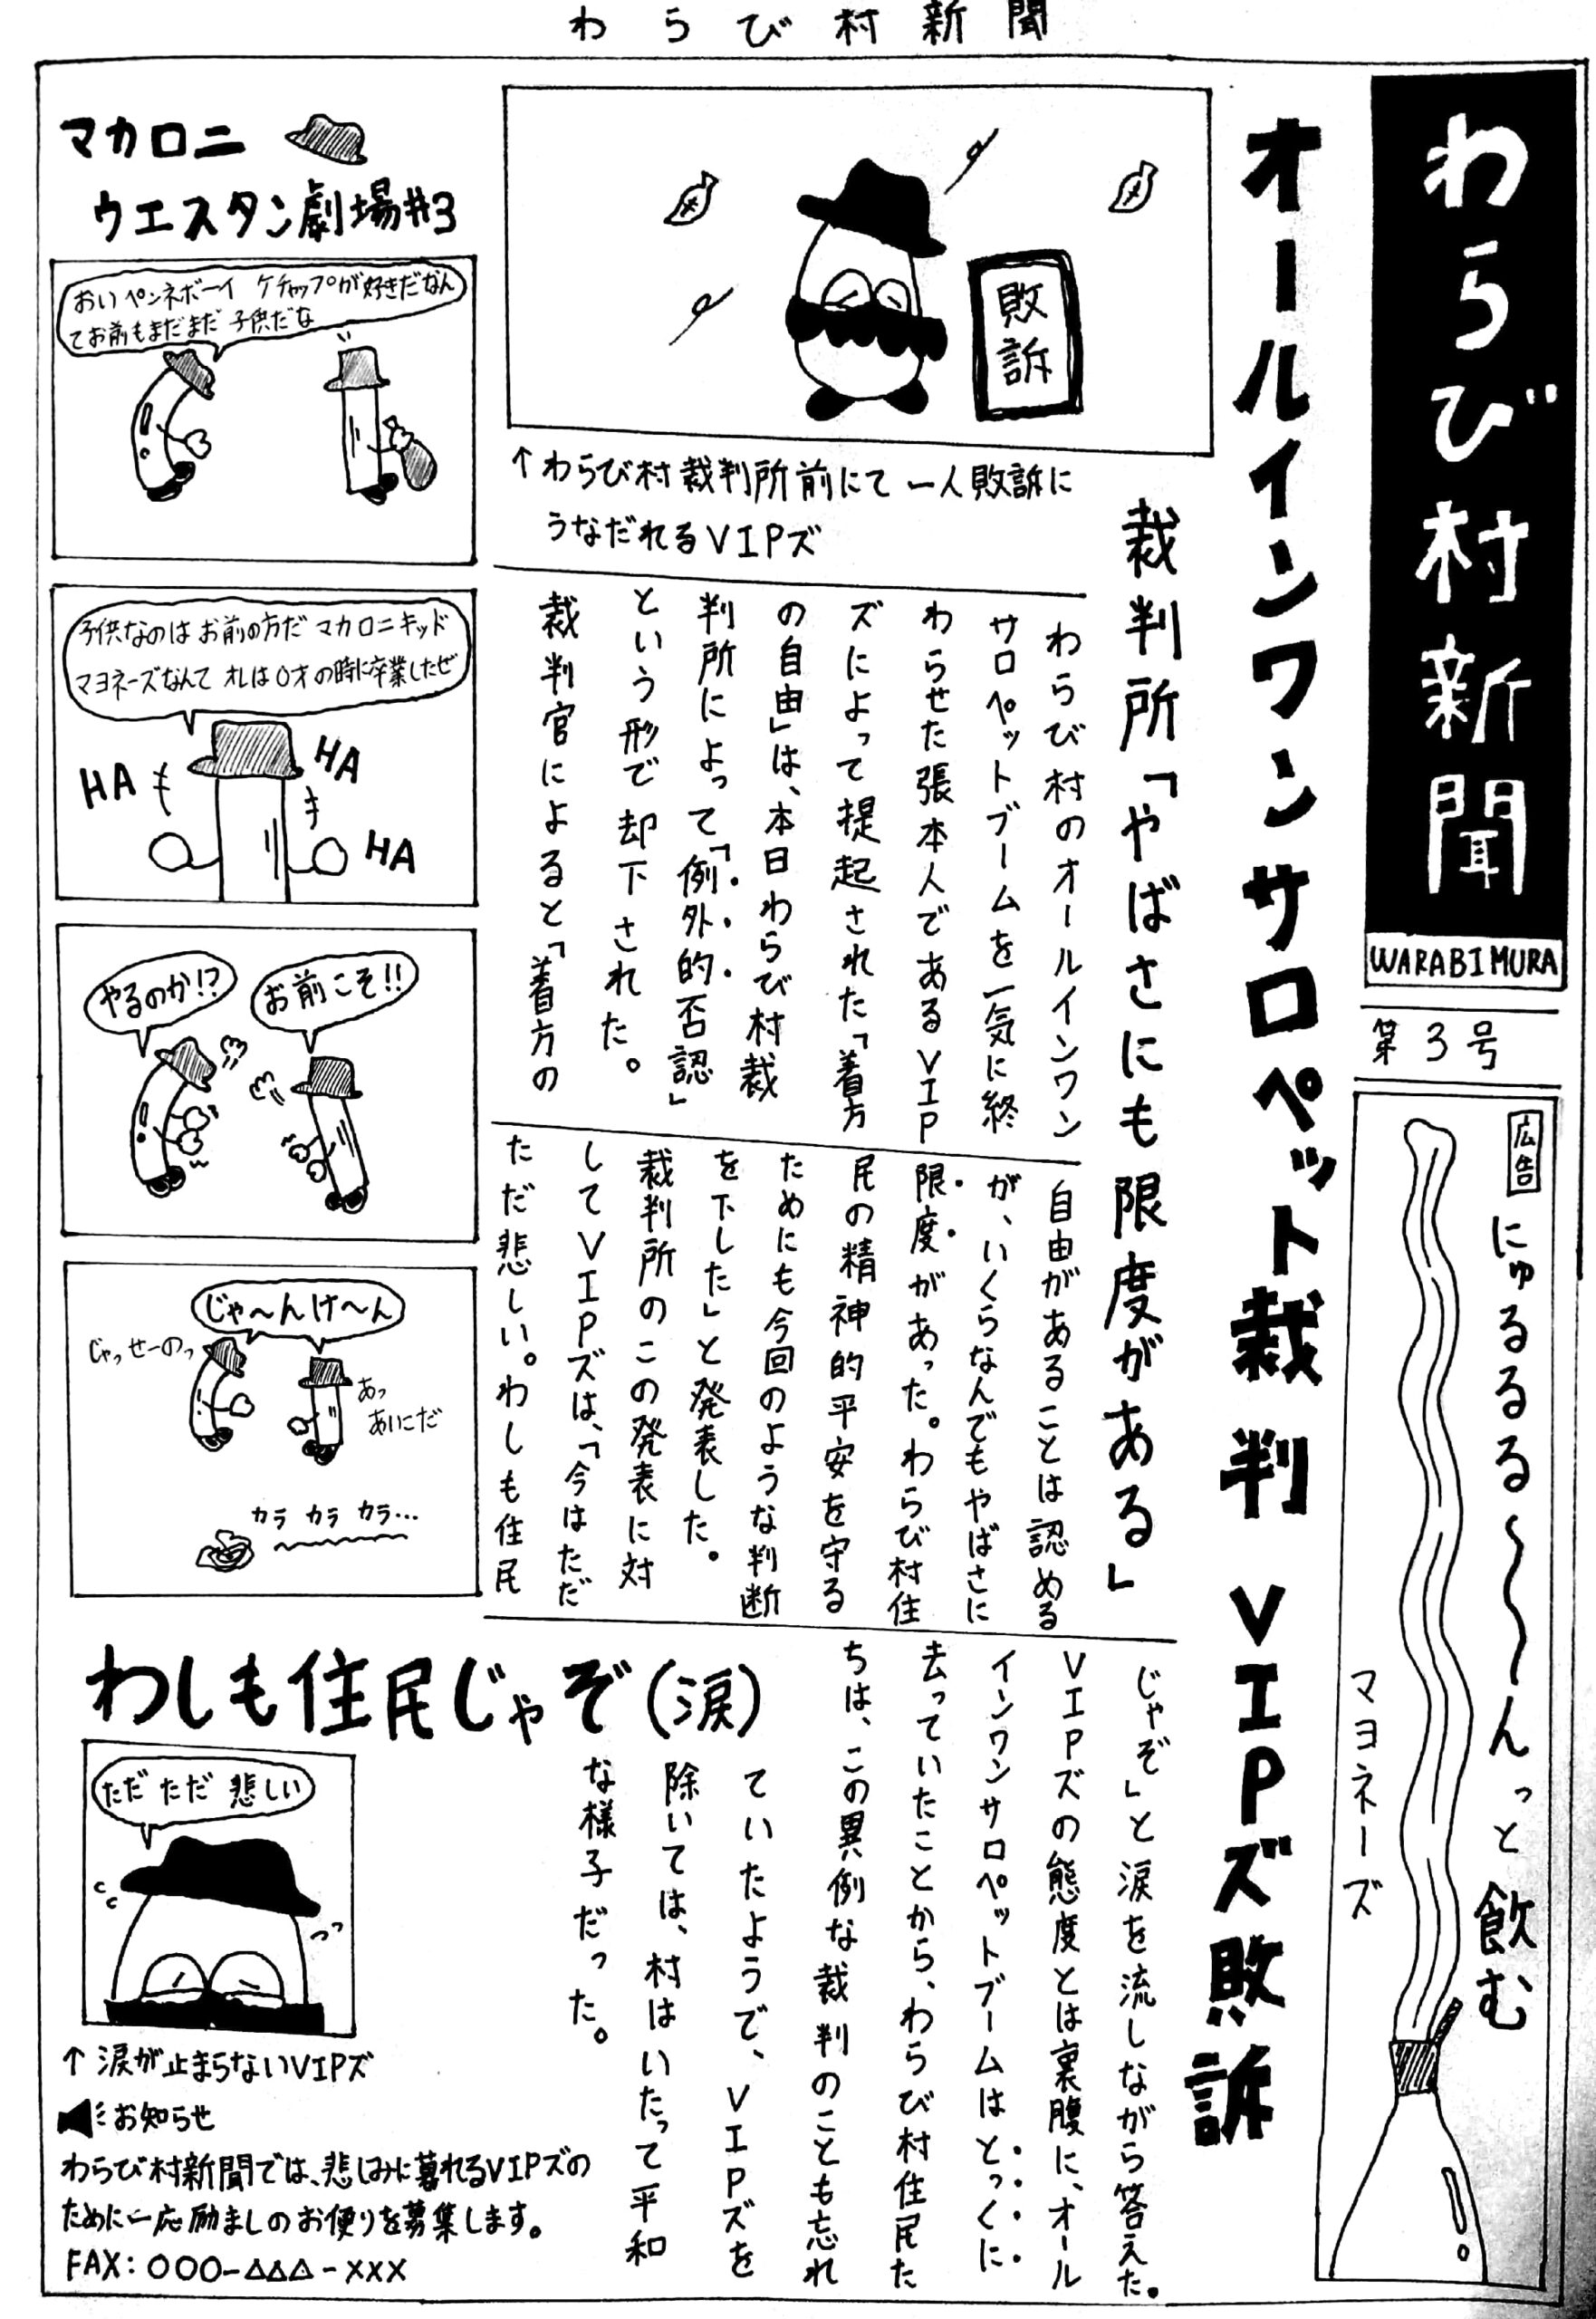 わらび村新聞
わらび村新聞
WARABIMURA
第3号
広告
にゅるるる〜〜んっと飲む
マヨネーズ
オールインワンサロペット裁判 VIPズ敗訴
裁判所「やばさにも限度がある」
敗訴
↑わらび村裁判所前にて一人敗訴に
うなだれるVIPズ
わらび村のオールインワン
サロペットブームを一気に終
わらせた張本人であるVIP
ズによって提起された「着方
の自由」は、本日わらび村裁
判所によって「例外的否認」
という形で却下された。
裁判官によると「着方の
自由があることは認める
が、いくらなんでもやばさに
限度があった。わらび村住
民の精神的平安を守る
ためにも今回のような判断
を下した」と発表した。
裁判所のこの発表に対
してVIPズは、「今はただ
ただ悲しい。わしも住民
じゃぞ」と涙を流しながら答えた。
VIPズの態度とは裏腹に、オール
インワンサロペットブームはとっくに
去っていたことから、わらび村住民た
ちは、この異例な裁判のことも忘れ
ていたようで、VIPズを
除いては、村はいたって平和
な様子だった。
マカロニ
ウエスタン劇場#3
おいペンネボーイ ケチャップが好きだなん
てお前もまだまだ子供だな
子供なのはお前の方だ マカロニキッド
マヨネーズなんてオレは0才の時に卒業したぜ
HA
HA
HA
やるのか!?
お前こそ!!
じゃ〜んけ〜ん
じゃっせーのっ
あっ
あいこだ
カラ カラ カラ…
わしも住民じゃぞ(涙)
ただ ただ 悲しい
↑涙が止まらないVIPズ
お知らせ
わらび村新聞では、悲しみに暮れるVIPズの
ために一応励ましのお便りを募集します。
FAX:○○○-△△△-×××